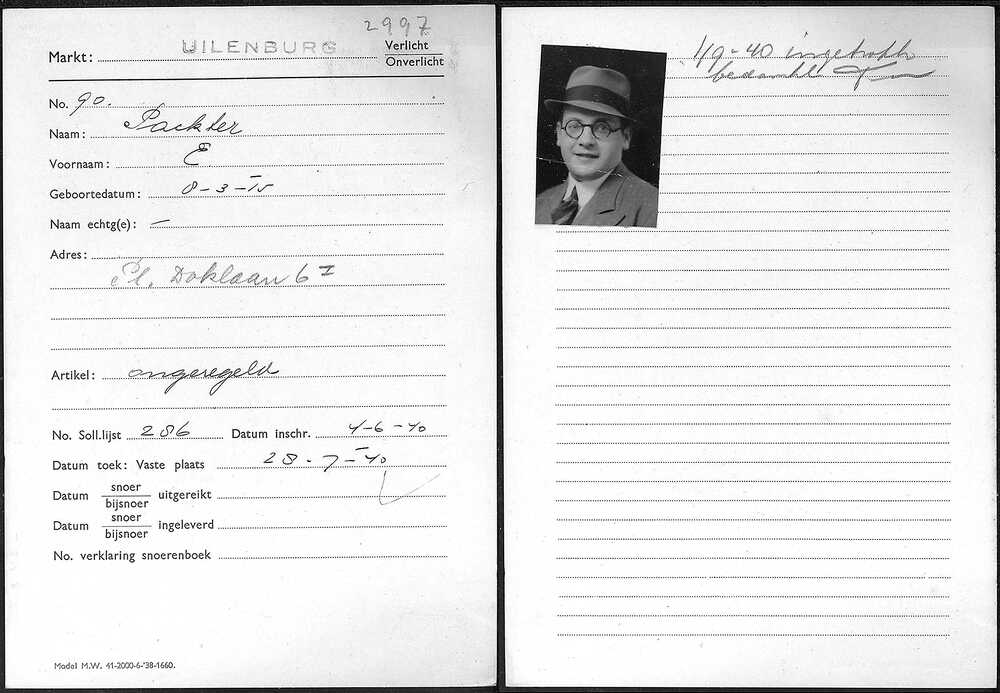 2997
Markt: UILENBURG Verlicht
Onverlicht
No. 90.
Naam: Packter
Voornaam: E
Geboortedatum: 8-3-15
Naam echtg(e): —
Adres:
Pl. Doklaan 6 I
Artikel: ongeregeld
No. Soll.lijst 286 Datum inschr. 4-6-40
Datum toek: Vaste plaats 28-7-40
Datum snoer/bijsnoer uitgereikt
Datum snoer/bijsnoer ingeleverd
No. verklaring snoerenboek
Model M.W. 41-2000-6-'38-1660.
1/9-40
bedankt